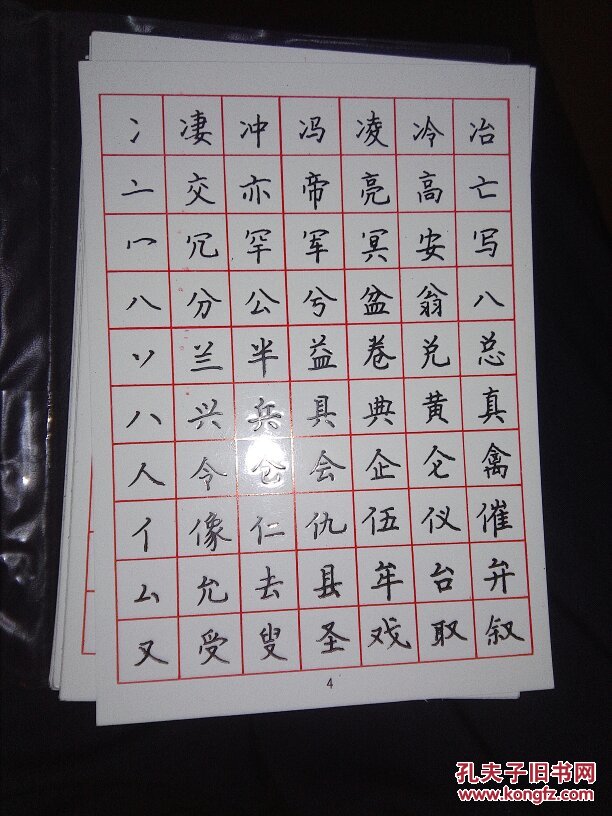 冫 凄 冲 冯 凌 冷 冶
亠 交 亦 帝 亮 高 亡
冖 冗 罕 军 冥 安 写
八 分 公 兮 盆 翁 八
丷 兰 半 益 卷 兑 总
八 兴 兵 具 典 黄 真
人 令 仓 会 企 仑 禽
亻 像 仁 仇 伍 仪 催
厶 允 去 县 牟 台 弁
又 受 叟 圣 戏 取 叙
4
孔夫子旧书网
www.kongfz.com